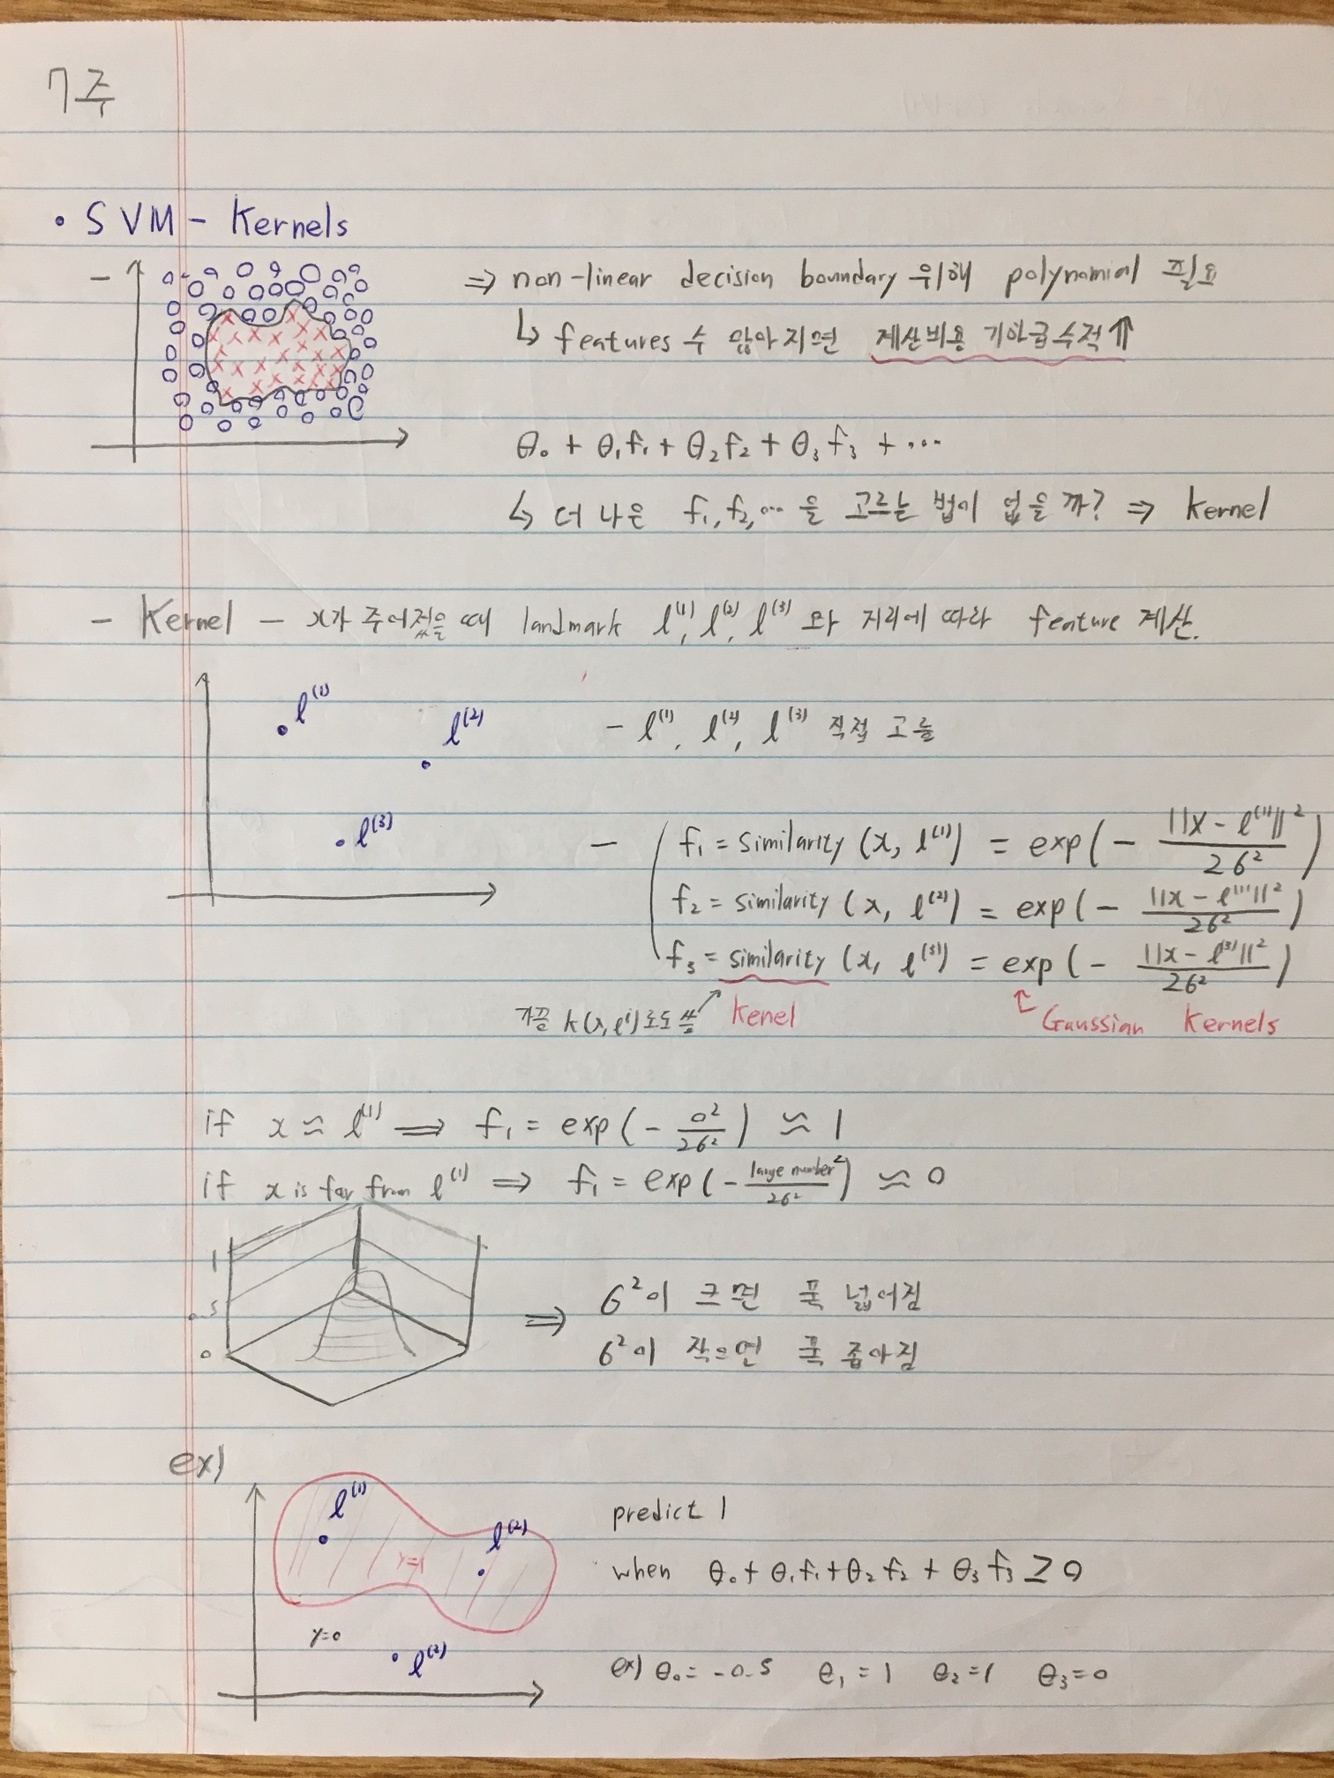 7주
• SVM - Kernels
⇒ non-linear decision boundary 위해 polynamial 필요
↳ features 수 많아지면 계산비용 기하급수적⇑
θ₀ + θ₁f₁ + θ₂f₂ + θ₃f₃ + ...
↳ 더 나은 f₁, f₂, ... 을 고르는 법이 없을까? ⇒ kernel
- Kernel - x가 주어졌을 때 landmark l⁽¹⁾, l⁽²⁾, l⁽³⁾ 와 거리에 따라 feature 계산.
l⁽¹⁾
l⁽²⁾
l⁽³⁾
- l⁽¹⁾, l⁽²⁾, l⁽³⁾ 직접 고름
- f₁ = similarity (x, l⁽¹⁾) = exp(- ||x - l⁽¹⁾||² / 2σ²)
f₂ = similarity (x, l⁽²⁾) = exp(- ||x - l⁽¹⁾||² / 2σ²)
f₃ = similarity (x, l⁽³⁾) = exp(- ||x - l⁽³⁾||² / 2σ²)
가끔 k(x, l⁽ⁱ⁾)로도 씀 Kenel
Gaussian Kernels
if x ≈ l⁽¹⁾ ⇒ f₁ = exp(- 0² / 2σ²) ≈ 1
if x is far from l⁽¹⁾ ⇒ f₁ = exp(- large number² / 2σ²) ≈ 0
1
.5
0
⇒ σ²이 크면 폭 넓어짐
σ²이 작으면 폭 좁아짐
ex)
l⁽¹⁾
l⁽²⁾
y=1
y=0
l⁽³⁾
predict 1
when θ₀ + θ₁f₁ + θ₂f₂ + θ₃f₃ ≥ 0
ex) θ₀ = -0.5 θ₁ = 1 θ₂ = 1 θ₃ = 0